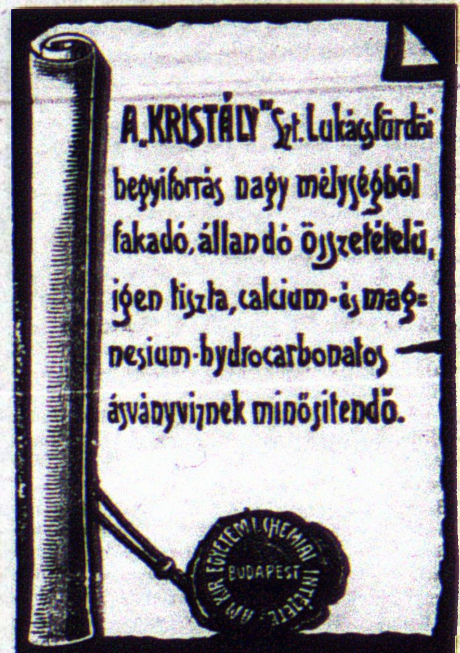 A „KRISTÁLY” Szt. Lukácsfürdői
hegyiforrás nagy mélységből
fakadó, állandó összetételű,
igen tiszta, calcium- és mag=
nesium-hydrocarbonatos
ásványviznek minősitendő.
A M. KIR. EGYETEM I. CHEMIAI INTÉZETE.
BUDAPEST